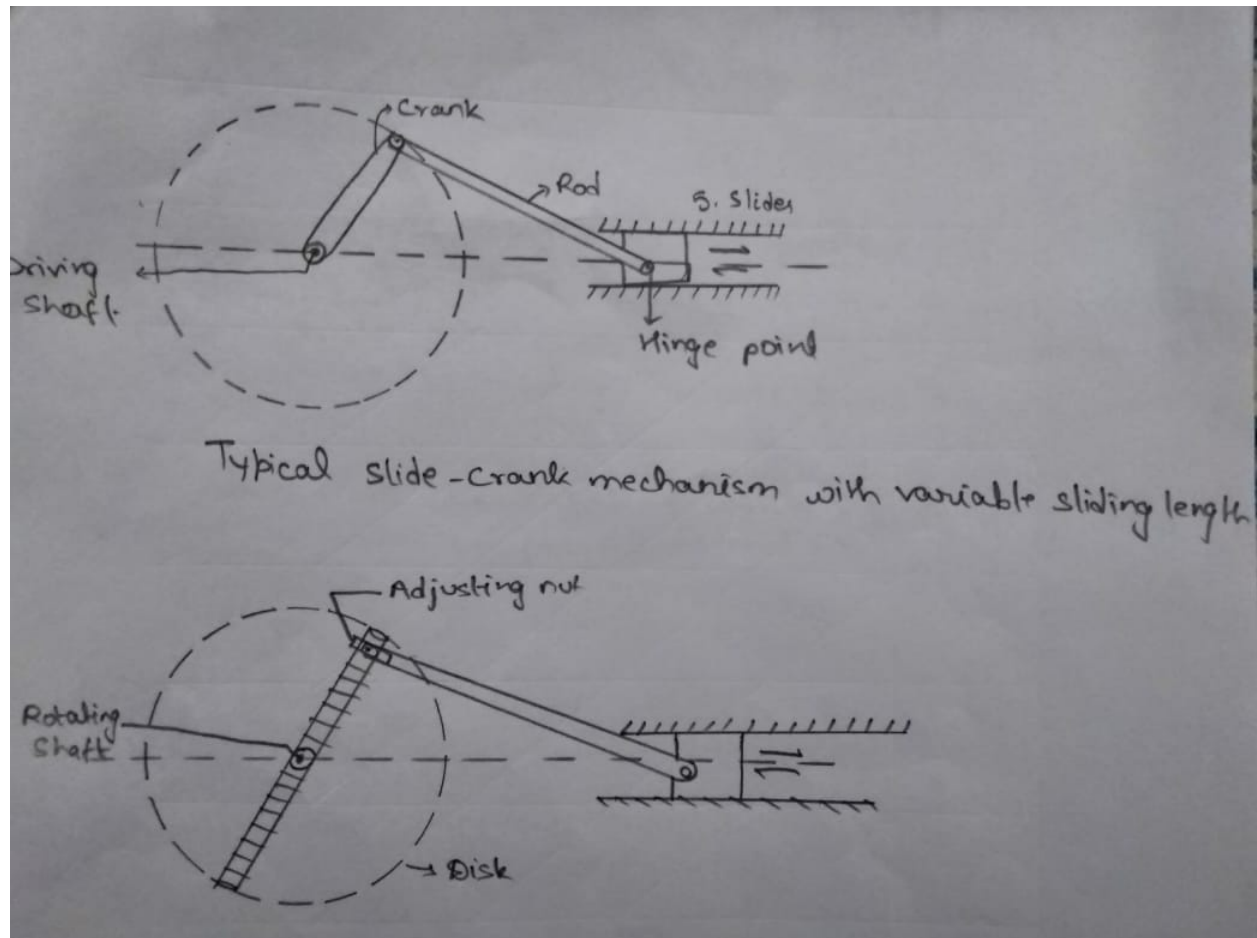 Crank
Rod
S. Slider
Driving
Shaft
Hinge point
Typical slide-crank mechanism with variable sliding length
Adjusting nut
Rotating
Shaft
Disk